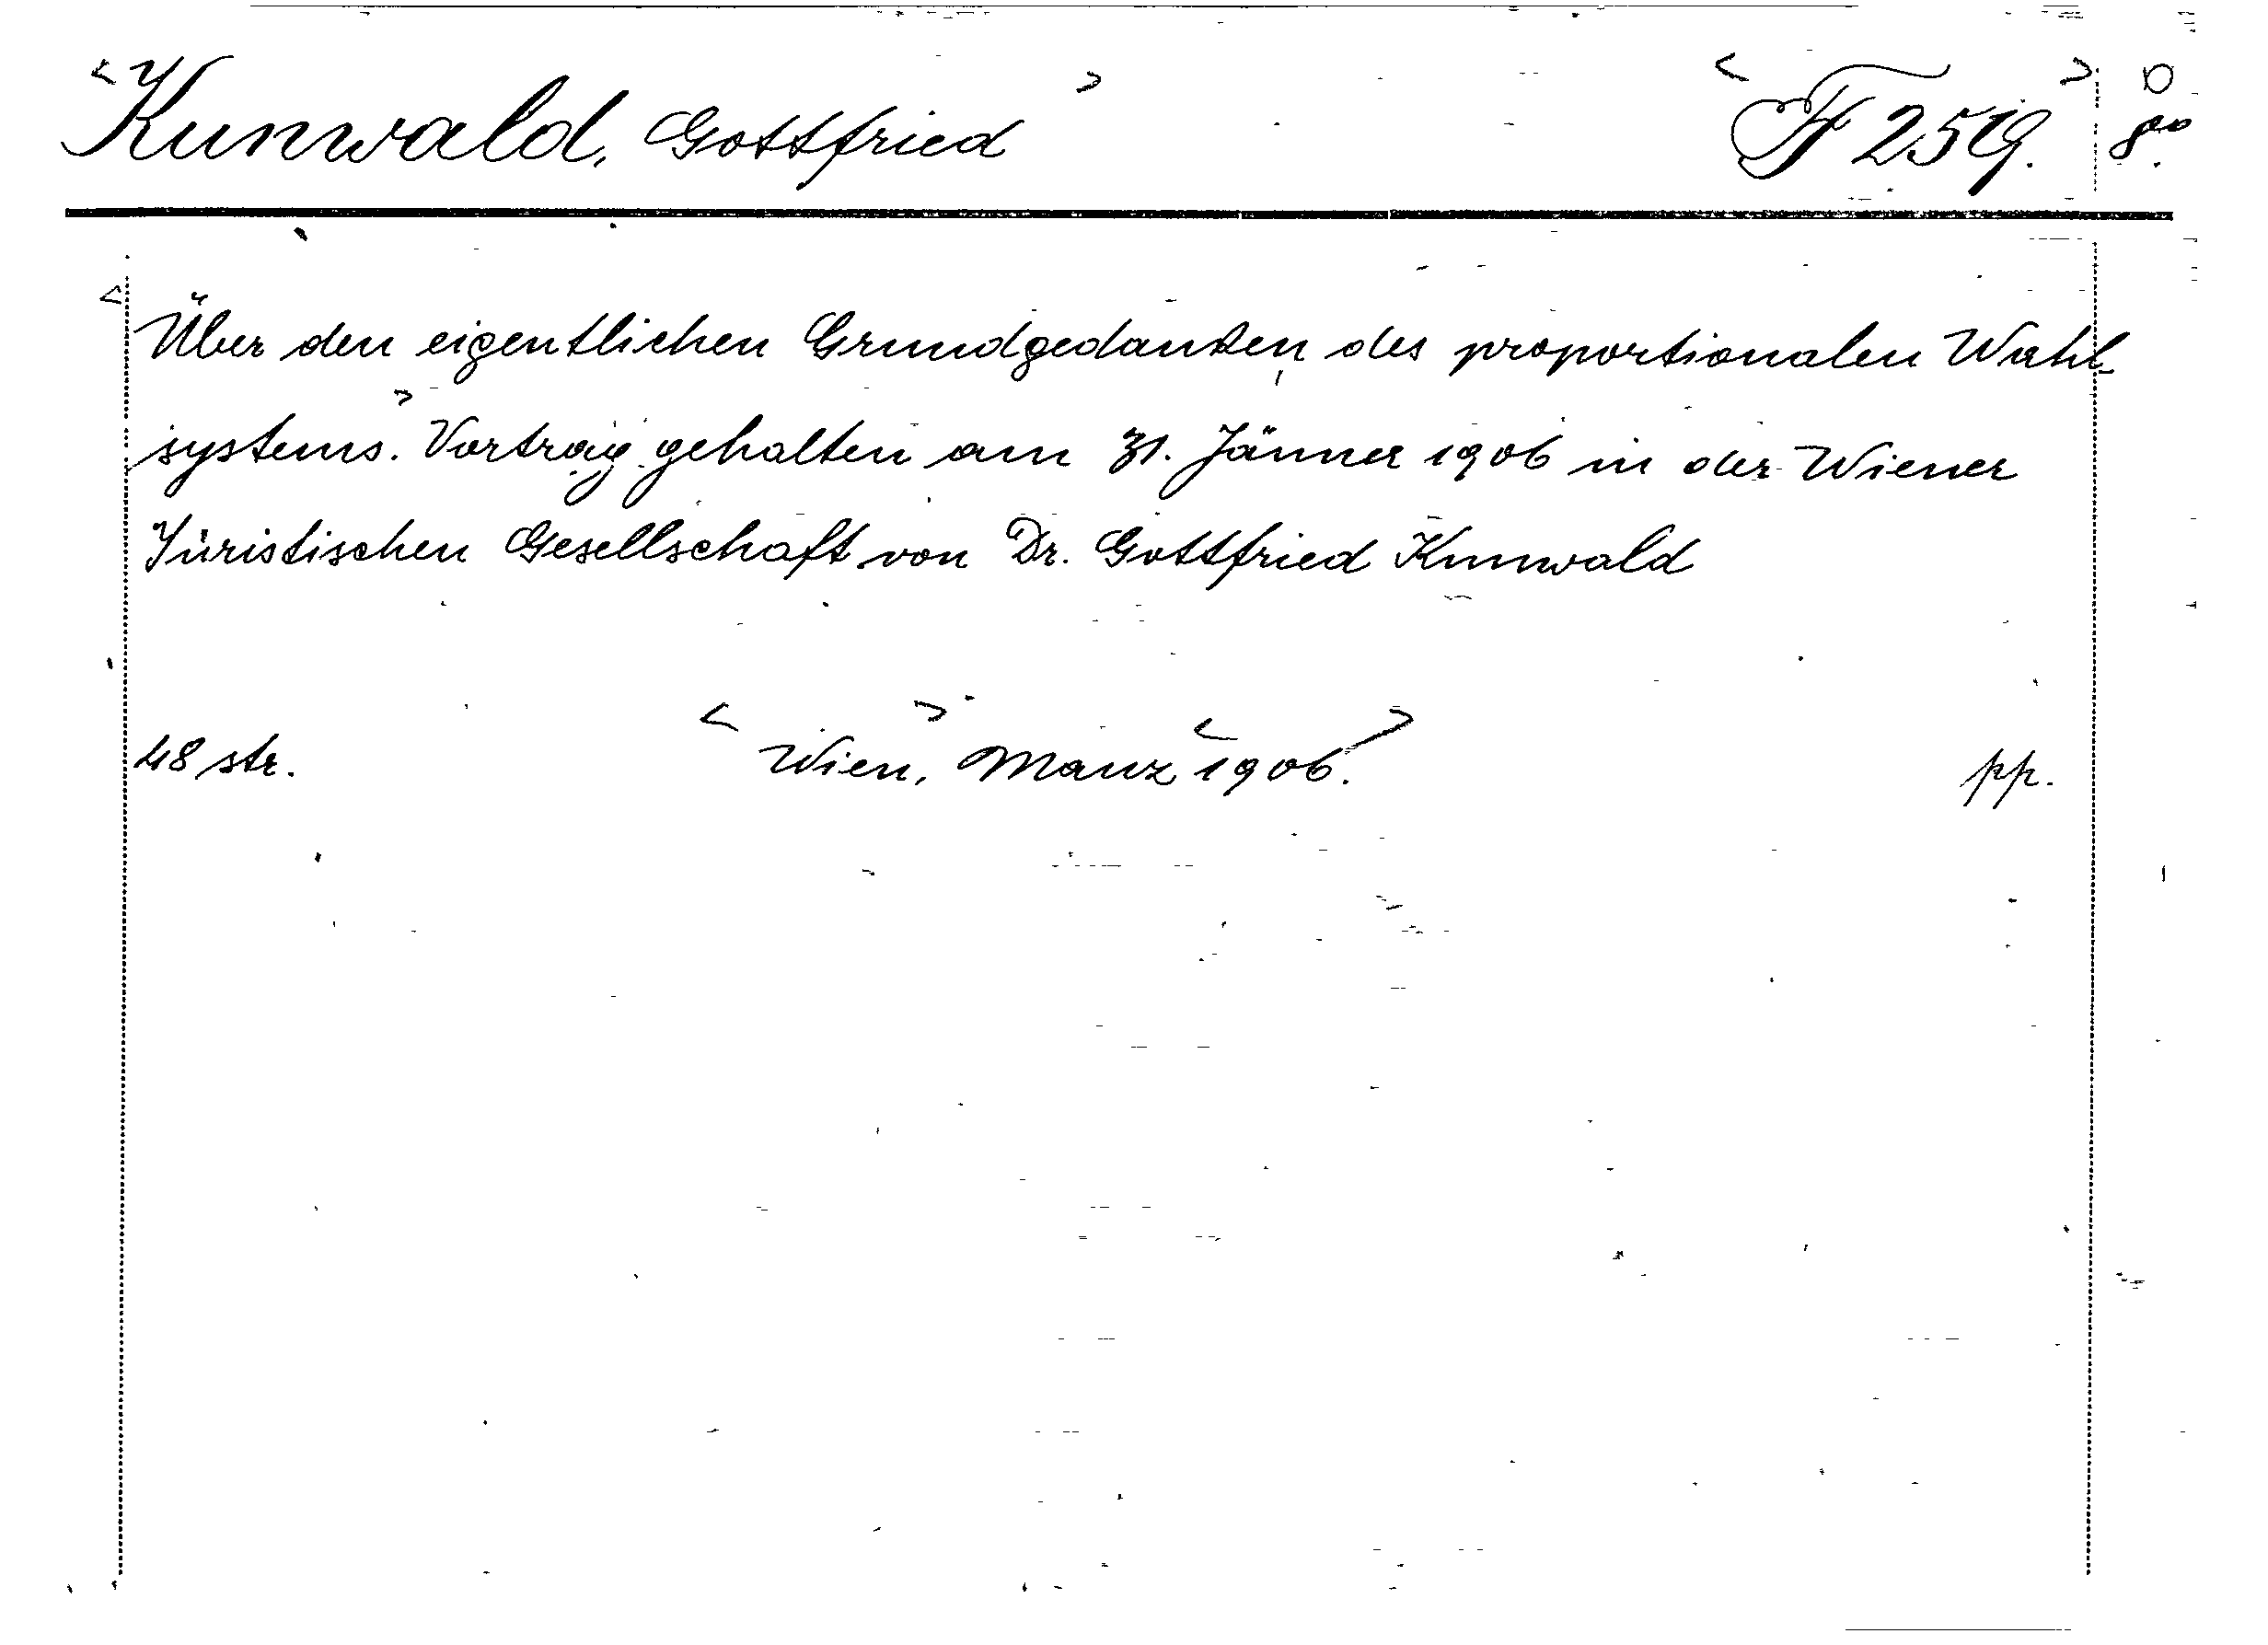 Kunwald, Gottfried F 2519. 8°
Über den eigentlichen Grundgedanken des proportionalen Wahl-
systems. Vortrag gehalten am 31. Jänner 1906 in der Wiener
Juristischen Gesellschaft von Dr. Gottfried Kunwald
48 str. Wien, Manz 1906. pp.